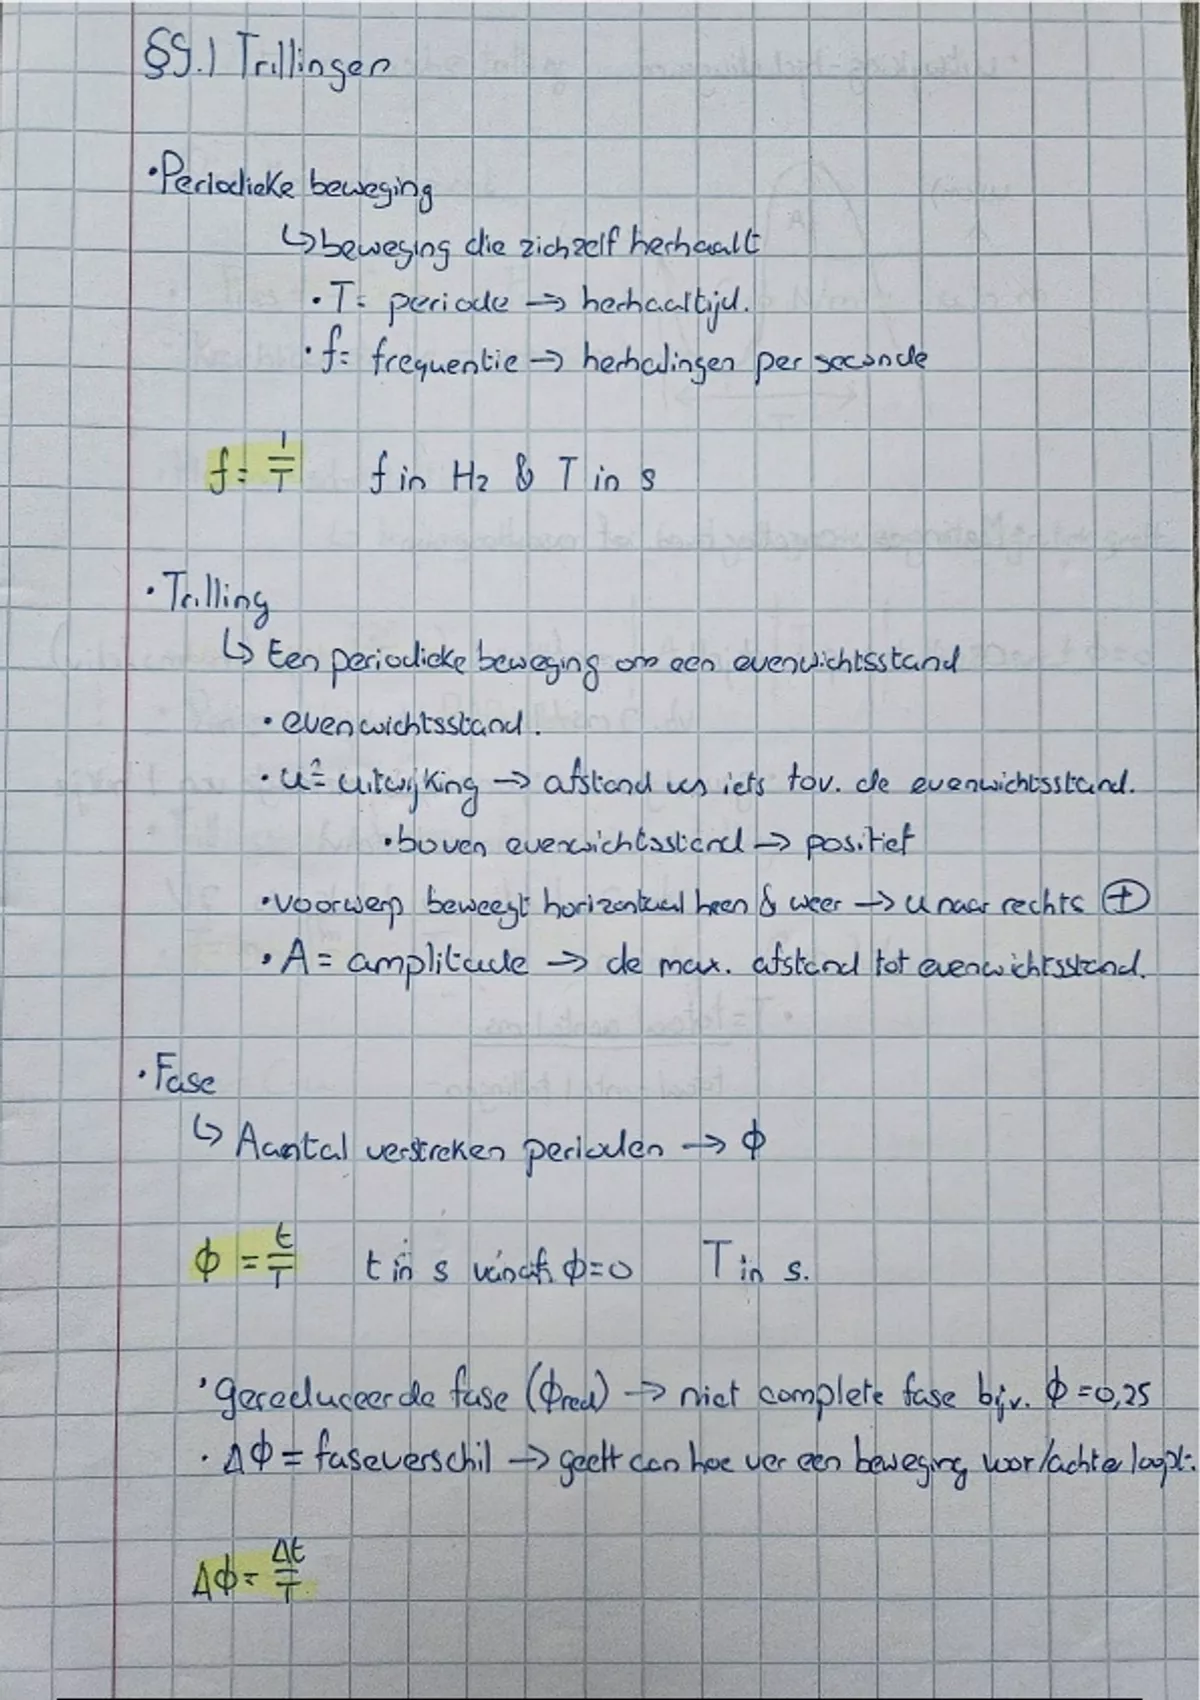 §9.1 Trillingen
• Periodieke beweging
↳ beweging die zichzelf herhaalt
• T = periode → herhaaltijd.
• f = frequentie → herhalingen per seconde
f = 1/T f in Hz & T in s
• Trilling
↳ Een periodieke beweging om een evenwichtsstand
• evenwichtsstand.
• u = uitwijking → afstand van iets tov. de evenwichtsstand.
• boven evenwichtsstand → positief
• voorwerp beweegt horizontaal heen & weer → u naar rechts ⊕
• A = amplitude → de max. afstand tot evenwichtsstand.
• Fase
↳ Aantal verstreken perioden → ϕ
ϕ = t/T t in s vanaf ϕ=0 T in s.
• gereduceerde fase (ϕred) → niet complete fase bijv. ϕ = 0,25
• Δϕ = faseverschil → geeft aan hoe ver een beweging voor/achter loopt.
Δϕ = Δt/T